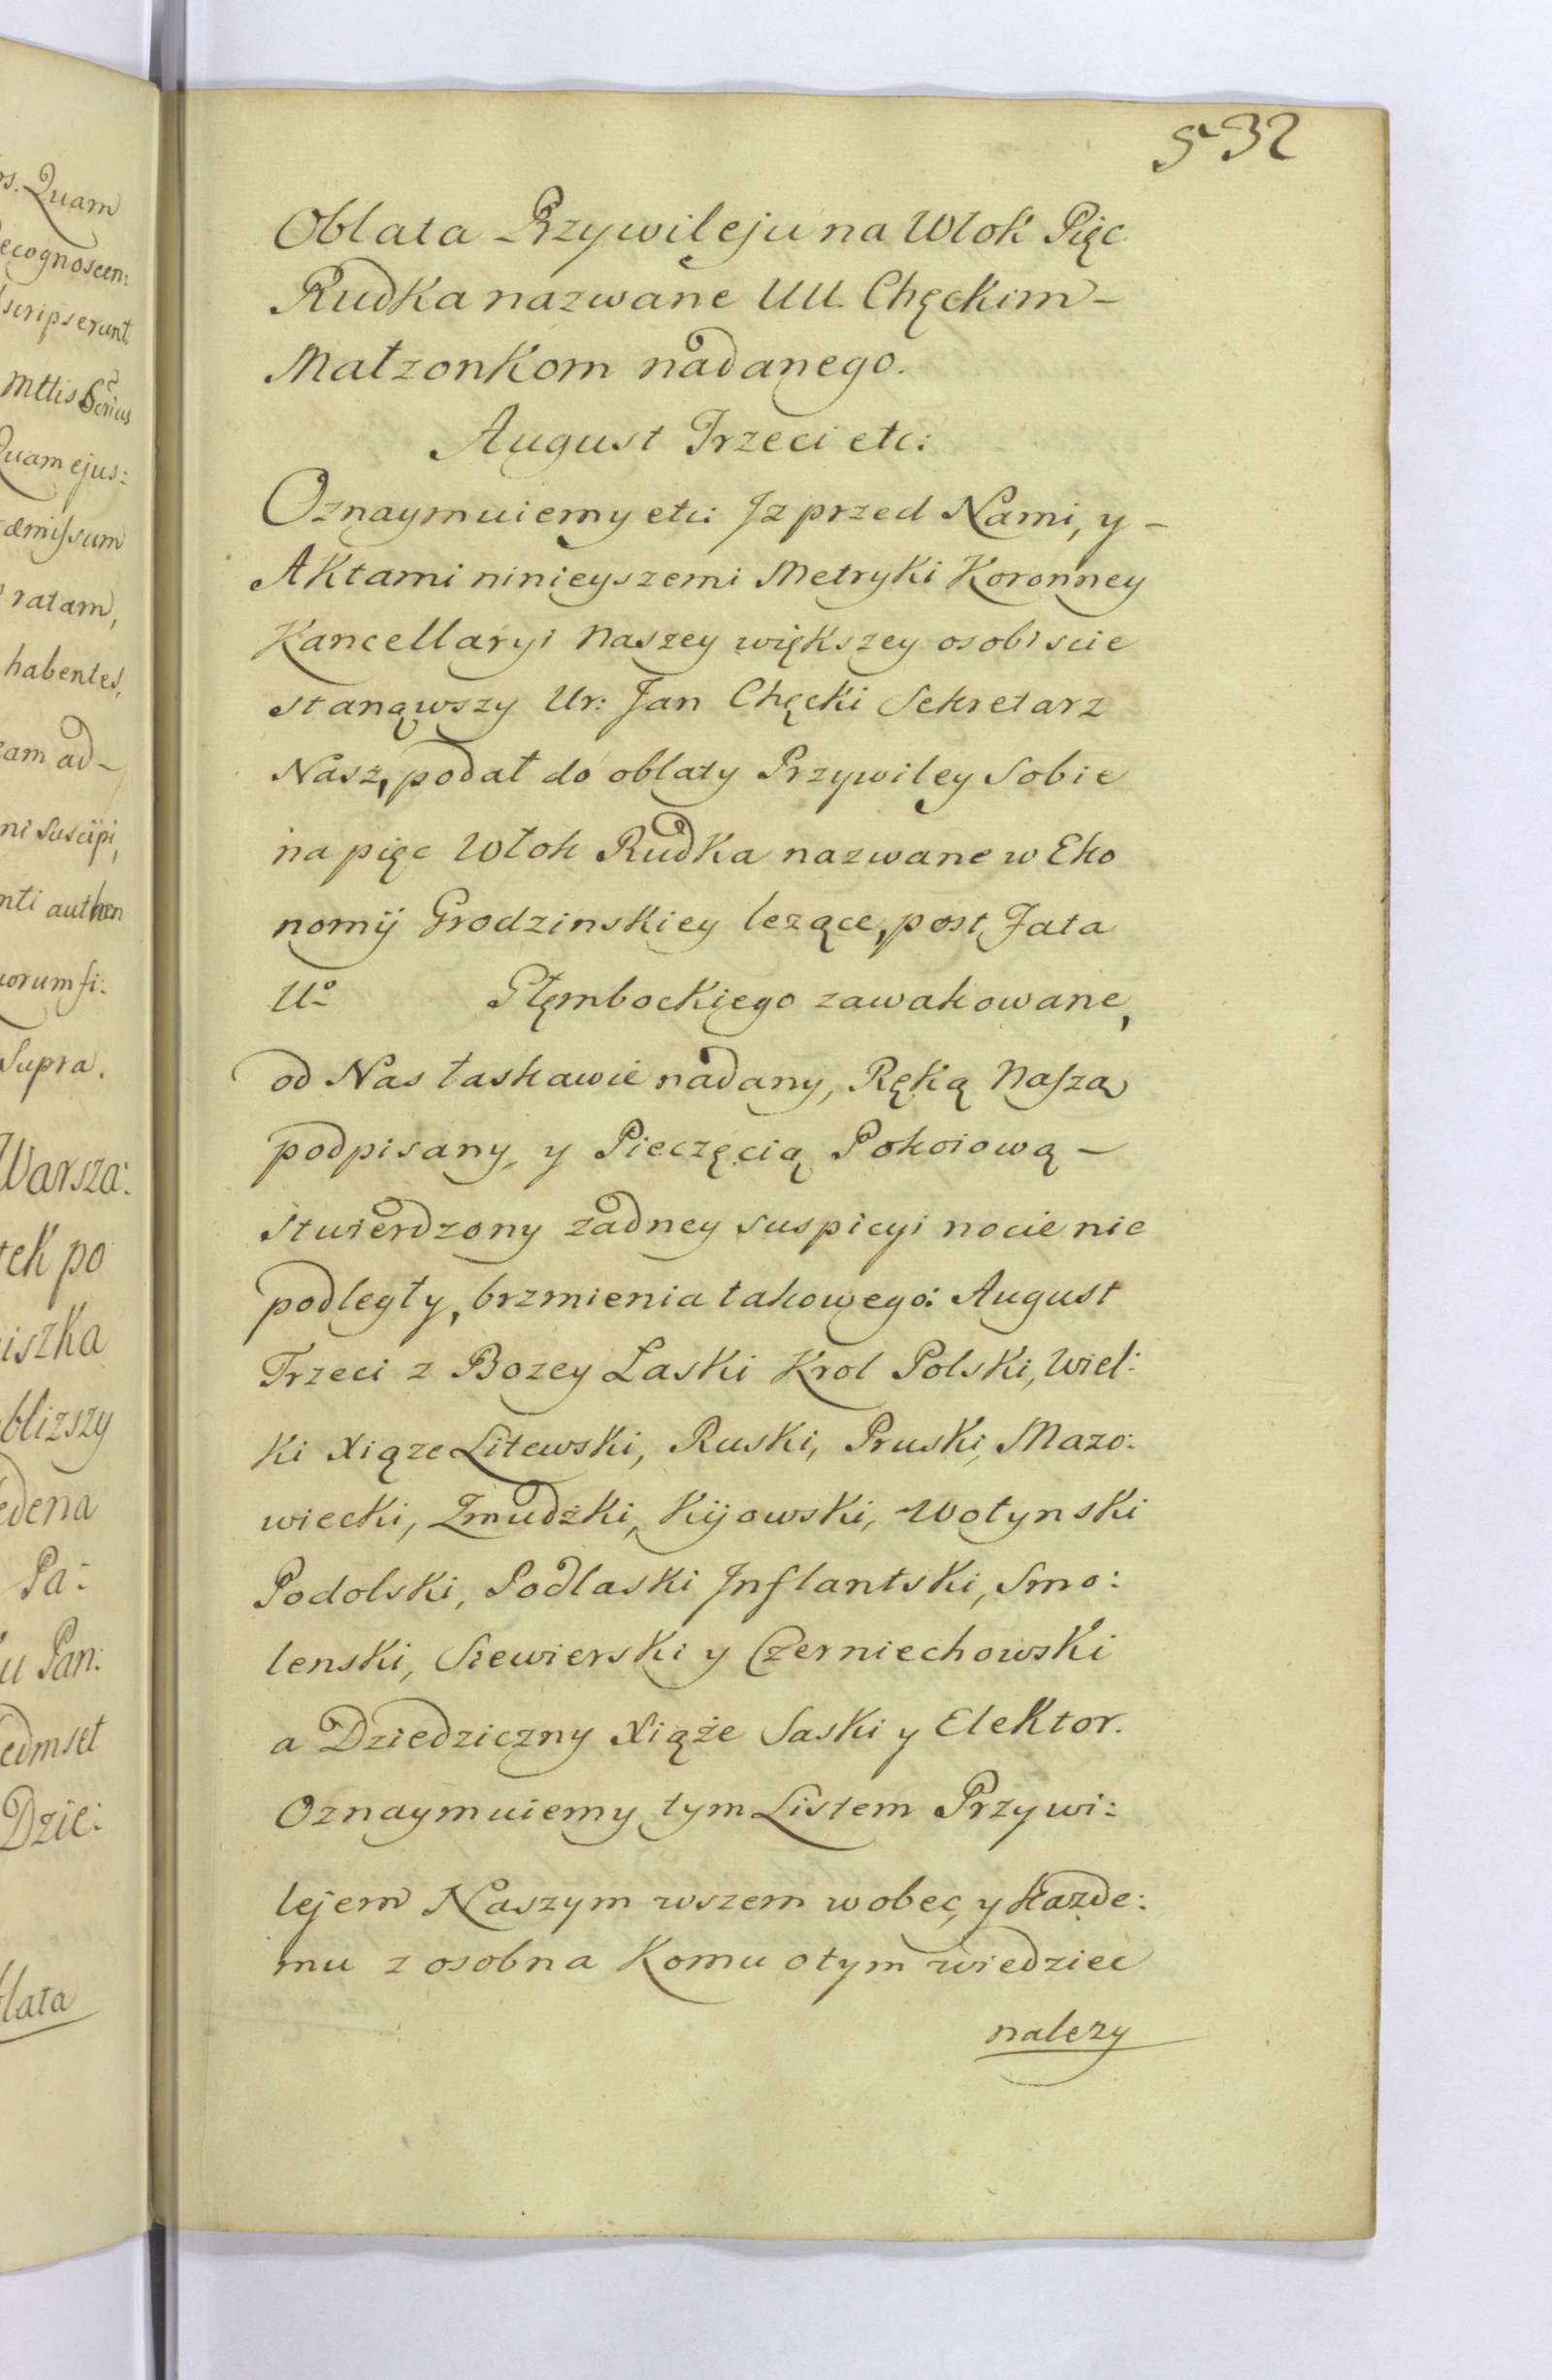 s. Quam
ecognoscen:
scripserunt
Mttis
Quam ejus:
æmissum
ratam,
habentes,
eam ad–
ni suscipi,
nti authen
uorum si:
Supra.
Warsza:
tek po
iszka
blizszy
edena
Pa:
u Pan:
edmset
Dzie:
lata
532
Oblata Przywileju na Włok Pięc
Rudka nazwane UU. Chęckim –
Małzonkom nadanego.
August Trzeci etc:
Oznaymuiemy etc: Iz przed Nami, y –
Aktami ninieyszemi Metryki Koronney
Kancellaryi Naszey większey osobiscie
stanąwszy Ur: Jan Chęcki Sekretarz
Nasz, podał do oblaty Przywiley Sobie
na pięc Włok Rudka nazwane w Eko
nomij Grodzinskiey lezące, post Fata
Uo Głęmbockiego zawakowane,
od Nas łaskawie nadany, Ręką Naszą
podpisany, y Pieczęcią Pokoiową –
stwierdzony żadney suspicyi nocie nie
podległy, brzmienia takowego: August
Trzeci z Bozey Laski Krol Polski, Wiel:
ki Xiąze Litewski, Ruski, Pruski, Mazo:
wiecki, Zmudzki, Kijowski, Wołynski
Podolski, Podlaski Inflantski, Smo:
lenski, Siewierski y Czerniechowski
a Dziedziczny Xiąże Saski y Elektor.
Oznaymuiemy tym Listem Przywi:
lejem Naszym wszem wobec, y każde:
mu z osobna Komu otym wiedziec
nalezy